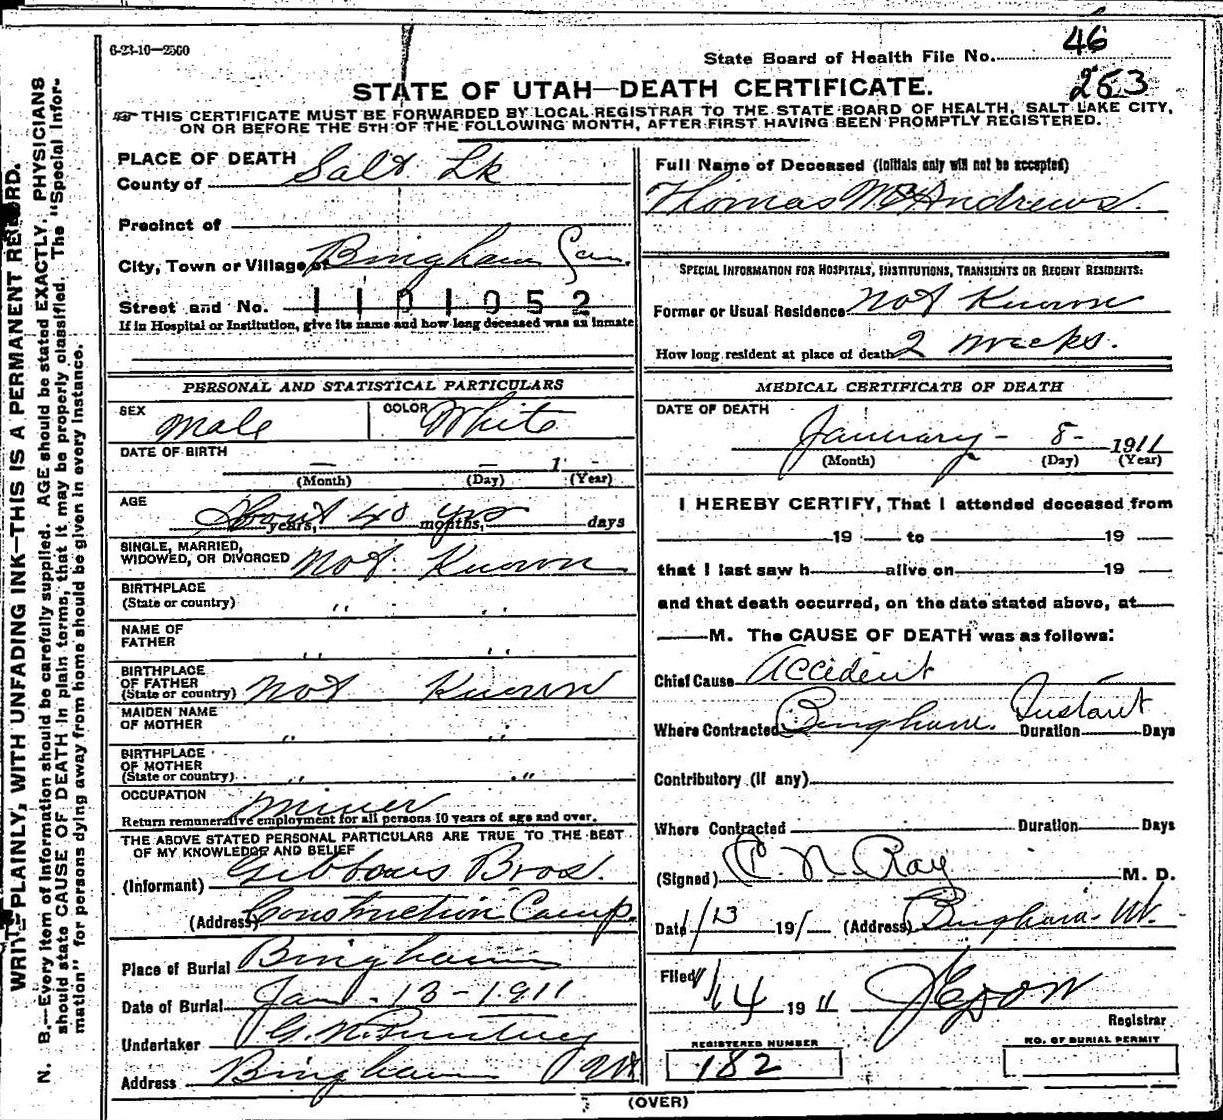 6-23-10—2500
State Board of Health File No. 46
253
STATE OF UTAH—DEATH CERTIFICATE.
THIS CERTIFICATE MUST BE FORWARDED BY LOCAL REGISTRAR TO THE STATE BOARD OF HEALTH, SALT LAKE CITY,
ON OR BEFORE THE 5TH OF THE FOLLOWING MONTH, AFTER FIRST HAVING BEEN PROMPTLY REGISTERED.
WRITE PLAINLY, WITH UNFADING INK—THIS IS A PERMANENT RECORD.
N. B.—Every item of information should be carefully supplied. AGE should be stated EXACTLY. PHYSICIANS
should state CAUSE OF DEATH in plain terms, that it may be properly classified. The "Special Infor-
mation" for persons dying away from home should be given in every instance.
PLACE OF DEATH
County of Salt Lk
Precinct of
City, Town or Village of Bingham Can.
Street and No. 1101052
If in Hospital or Institution, give its name and how long deceased was an inmate
PERSONAL AND STATISTICAL PARTICULARS
SEX Male
COLOR White
DATE OF BIRTH
— — 1 -
(Month) (Day) (Year)
AGE About 40 yrs
years, months, days
SINGLE, MARRIED,
WIDOWED, OR DIVORCED Not Known
BIRTHPLACE
(State or country) " "
NAME OF
FATHER " "
BIRTHPLACE
OF FATHER
(State or country) Not Known
MAIDEN NAME
OF MOTHER " "
BIRTHPLACE
OF MOTHER
(State or country) " "
OCCUPATION Miner
Return remunerative employment for all persons 10 years of age and over.
THE ABOVE STATED PERSONAL PARTICULARS ARE TRUE TO THE BEST
OF MY KNOWLEDGE AND BELIEF
(Informant) Gibbons Bros.
(Address) Construction Camp.
Place of Burial Bingham
Date of Burial Jan - 13 - 1911
Undertaker G. N.
Address Bingham Ut
Full Name of Deceased (Initials only will not be accepted)
Thomas McAndrews.
SPECIAL INFORMATION FOR HOSPITALS, INSTITUTIONS, TRANSIENTS OR RECENT RESIDENTS:
Former or Usual Residence Not Known
How long resident at place of death 2 weeks.
MEDICAL CERTIFICATE OF DEATH
DATE OF DEATH
January - 8 - 1911
(Month) (Day) (Year)
I HEREBY CERTIFY, That I attended deceased from
19 to 19
that I last saw h alive on 19
and that death occurred, on the date stated above, at
M. The CAUSE OF DEATH was as follows:
Chief Cause Accident
Where Contracted Bingham. Duration Instant Days
Contributory (if any)
Where Contracted Duration Days
(Signed) C. N. Ray M. D.
Date 1/13 191 (Address) Bingham Ut.
Filed 1/14 1911
Registrar
REGISTERED NUMBER
182
NO. OF BURIAL PERMIT
(OVER)